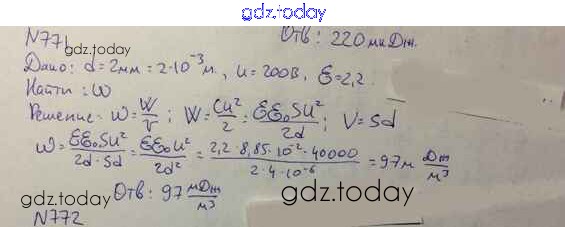 gdz.today
N771
Отв: 220 мкДж.
gdz.today
Дано: d=2мм=2·10⁻³м., u=200В, ε=2,2
Найти: ω
gdz.today
Решение: ω=W/V; W=Cu²/2=εε₀Su²/2d; V=Sd
ω=εε₀Su²/2d·Sd=εε₀u²/2d²=2,2·8,85·10⁻²·40000/2·4·10⁻⁶=97м Дж/м³
gdz.today
Отв: 97 мДж/м³
gdz.today
N772